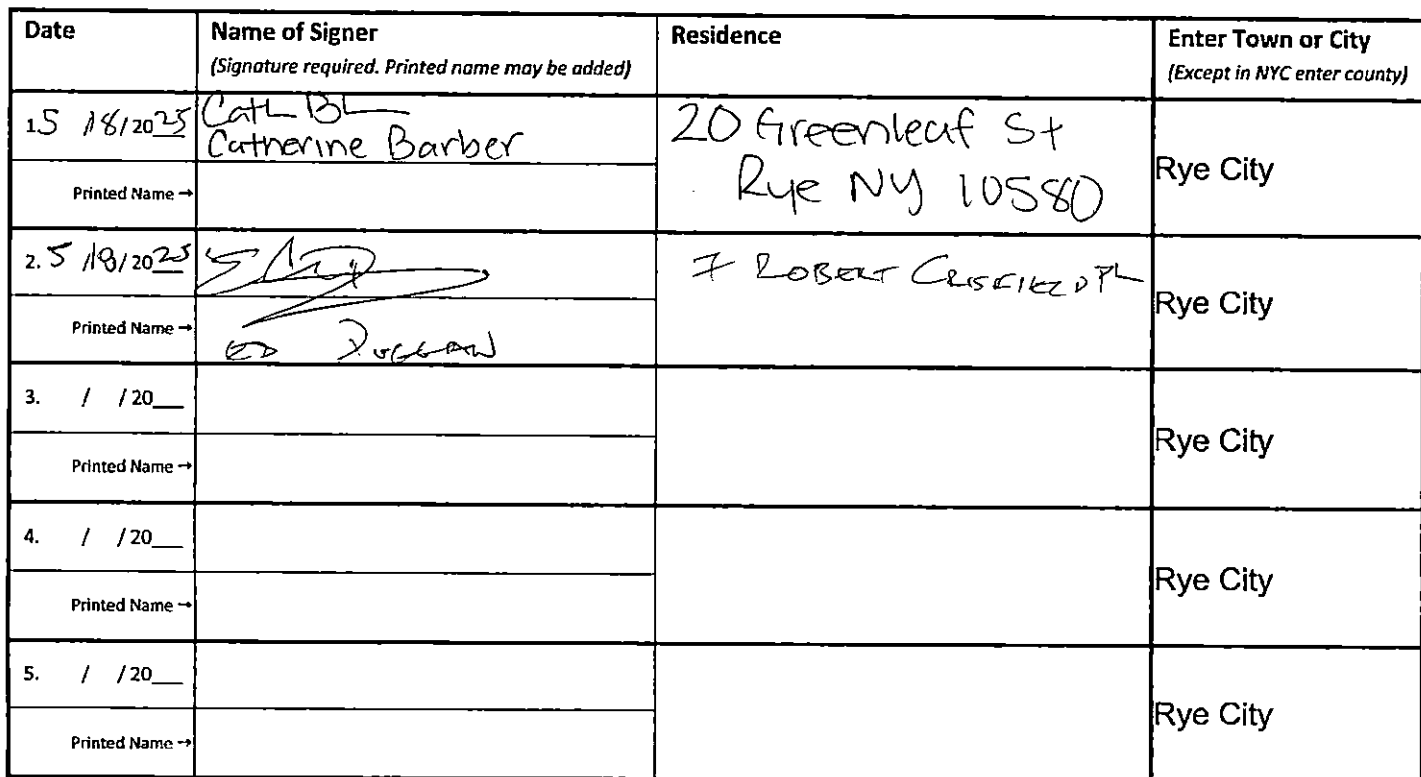 Date Name of Signer Residence Enter Town or City
(Signature required. Printed name may be added) (Except in NYC enter county)
1. 5 /18/2025 Cath B
Catherine Barber
20 Greenleaf St
Rye NY 10580
Rye City
Printed Name →
2. 5 /18/2025
7 ROBERT CRISFIELD PL
Rye City
Printed Name →
ED DUGGAN
3. / /20__
Rye City
Printed Name →
4. / /20__
Rye City
Printed Name →
5. / /20__
Rye City
Printed Name →